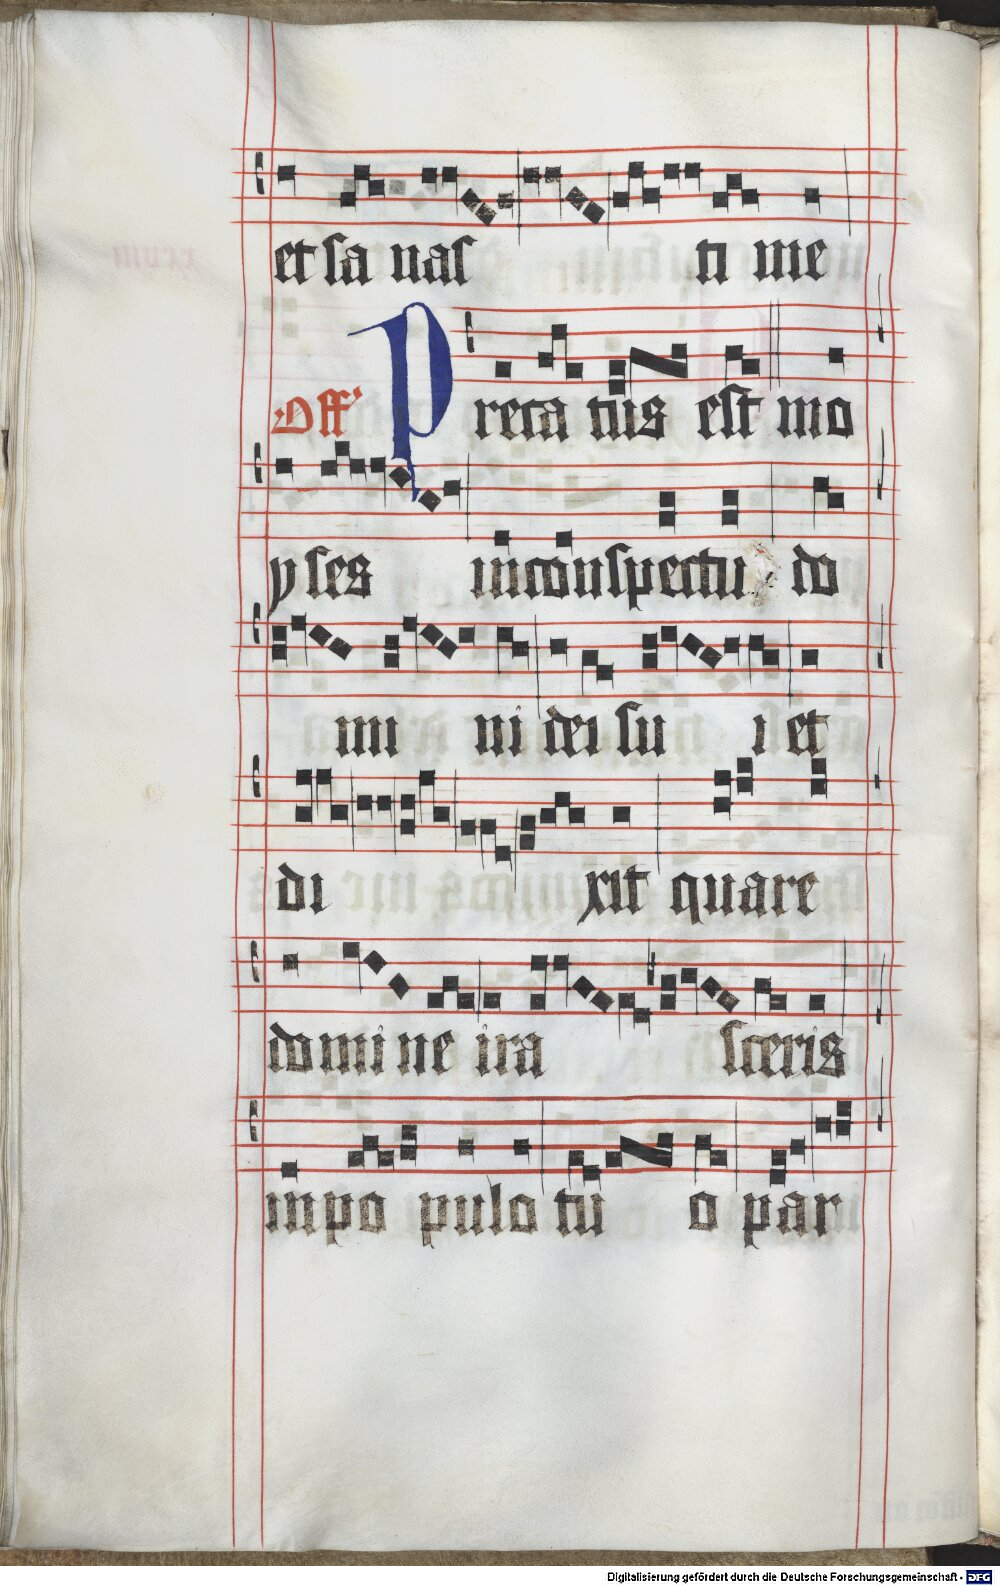 et sa nas ti me
Off' Preca tus est mo
yses in conspectu do
mi ni dei su i et
di xit quare
domi ne ira sceris
in po pulo tu o par
Digitalisierung gefördert durch die Deutsche Forschungsgemeinschaft - DFG